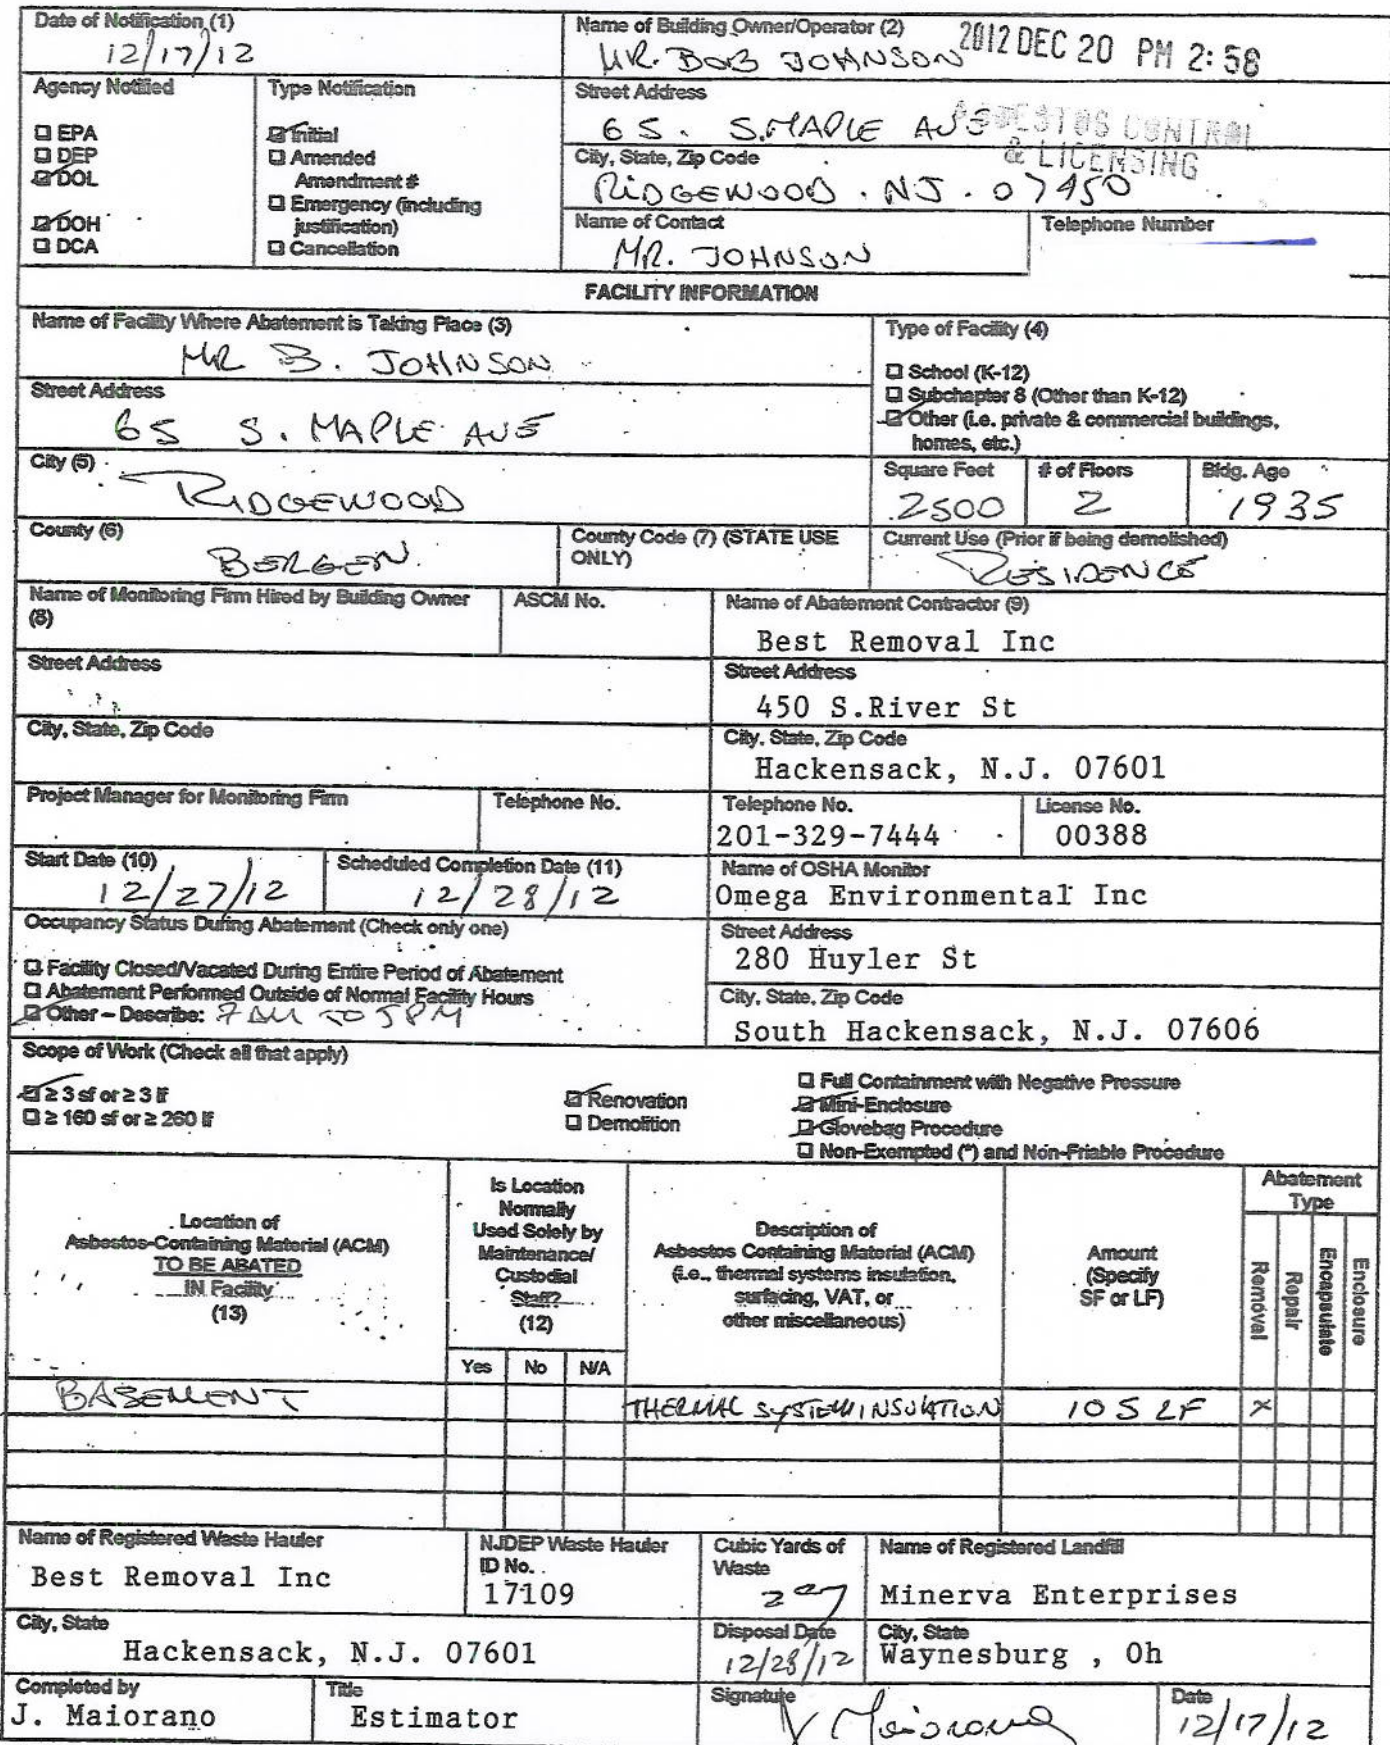 Date of Notification (1)
12/17/12
Name of Building Owner/Operator (2)
MR. BOB JOHNSON
2012 DEC 20 PM 2:58
Agency Notified
EPA
DEP
DOL
DOH
DCA
Type Notification
Initial
Amended
Amendment #
Emergency (including
justification)
Cancellation
Street Address
65. S. MAPLE AVE
ASBESTOS CONTROL
& LICENSING
City, State, Zip Code
RIDGEWOOD. NJ. 07450
Name of Contact
MR. JOHNSON
Telephone Number
FACILITY INFORMATION
Name of Facility Where Abatement is Taking Place (3)
MR B. JOHNSON
Street Address
65 S. MAPLE AVE
City (5)
RIDGEWOOD
Type of Facility (4)
School (K-12)
Subchapter 8 (Other than K-12)
Other (i.e. private & commercial buildings,
homes, etc.)
Square Feet
2500
# of Floors
2
Bldg. Age
1935
County (6)
BERGEN
County Code (7) (STATE USE
ONLY)
Current Use (Prior if being demolished)
RESIDENCE
Name of Monitoring Firm Hired by Building Owner
(8)
ASCM No.
Name of Abatement Contractor (9)
Best Removal Inc
Street Address
Street Address
450 S.River St
City, State, Zip Code
City, State, Zip Code
Hackensack, N.J. 07601
Project Manager for Monitoring Firm
Telephone No.
Telephone No.
201-329-7444
License No.
00388
Start Date (10)
12/27/12
Scheduled Completion Date (11)
12/28/12
Name of OSHA Monitor
Omega Environmental Inc
Occupancy Status During Abatement (Check only one)
Facility Closed/Vacated During Entire Period of Abatement
Abatement Performed Outside of Normal Facility Hours
Other – Describe: 7 AM TO 5PM
Street Address
280 Huyler St
City, State, Zip Code
South Hackensack, N.J. 07606
Scope of Work (Check all that apply)
≥ 3 sf or ≥ 3 lf
≥ 160 sf or ≥ 260 lf
Renovation
Demolition
Full Containment with Negative Pressure
Mini-Enclosure
Glovebag Procedure
Non-Exempted (*) and Non-Friable Procedure
Location of
Asbestos-Containing Material (ACM)
TO BE ABATED
IN Facility
(13)
Is Location
Normally
Used Solely by
Maintenance/
Custodial
Staff?
(12)
Yes No N/A
Description of
Asbestos Containing Material (ACM)
(i.e., thermal systems insulation,
surfacing, VAT, or
other miscellaneous)
Amount
(Specify
SF or LF)
Abatement
Type
Removal
Repair
Encapsulate
Enclosure
BASEMENT THERMAL SYSTEM INSULATION 105 LF X
Name of Registered Waste Hauler
Best Removal Inc
NJDEP Waste Hauler
ID No.
17109
Cubic Yards of
Waste
Name of Registered Landfill
Minerva Enterprises
City, State
Hackensack, N.J. 07601
Disposal Date
12/28/12
City, State
Waynesburg , Oh
Completed by
J. Maiorano
Title
Estimator
Signature
Maiorano
Date
12/17/12